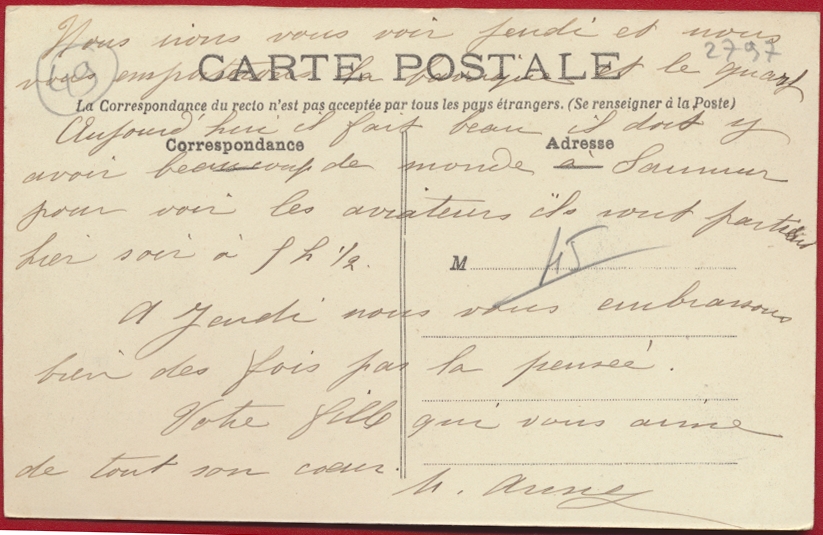 Nous irons vous voir jeudi et nous
49
2797
CARTE POSTALE
vous emporterons la barrique et le quart
La Correspondance du recto n'est pas acceptée par tous les pays étrangers. (Se renseigner à la Poste)
Aujourd'hui il fait beau il doit y
Correspondance
Adresse
avoir beaucoup de monde à Saumur
pour voir les aviateurs ils sont partis
hier soir à 5 h 1/2.
M
45
A Jeudi nous vous embrassons
bien des fois par la pensée.
Votre fille qui vous aime
de tout son cœur.